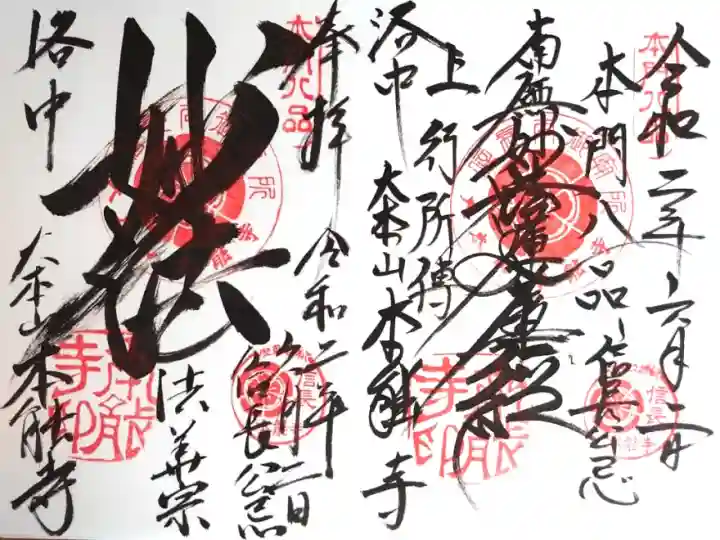 令和二年六月二日
本門八品 信長公忌
南無妙法蓮華経
上行所傳
洛中 大本山 本能寺
本能寺印
奉拝 令和二年六月二日
信長公忌
妙法
法華宗
洛中 大本山 本能寺
本能寺印